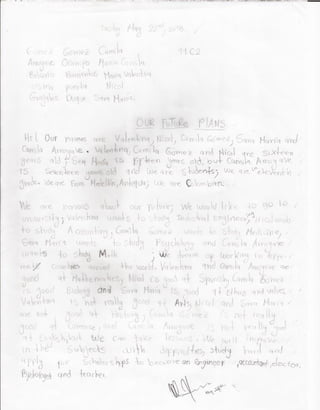 Tuesday May 22nd, 2018.
Gomez Gomez Camila 11 C2
Arroyave Ocampo Maria Camila
Bolivar Barrientos Maria Valentina
puerta Nicol
Grajales Duque Sara Maria.
OUR FUTURE PLANS
Hi! Our names are Valentina, Nicol, Camila Gomez, Sara Maria and
Camila Arroyave. Valentina, Camila Gomez and Nicol are sixteen
years old, Sara Maria is fifteen years old, but Camila Arroyave
is seventeen years old and we are students; we are eleventh
grade. We are from Medellín, Antioquia; we are Colombians.
We are nervous about our future; We would like to go to
university; Valentina wants to study Industrial engineering, Nicol wants
to study Accounting, Camila Gomez wants to study Medicine,
Sara Maria wants to study Psychology and Camila Arroyave
wants to study Math. We dream of working in
many countries around the world. Valentina and Camila Arroyave are
good at Mathematics, Nicol is good at Spanish, Camila Gomez
is good Biology and Sara Maria is good at ethics and values.
Valentina is not really good at Arts, Nicol and Sara Maria
are not good at history, Camila Gomez is not really
good at and Camila Arroyave is not really good
at English, but we can take lessons. We will improve
in the subjects with opportunities, study hard and
apply for Scholarships to become an engineer, accountant, doctor,
Psychologist and teacher.